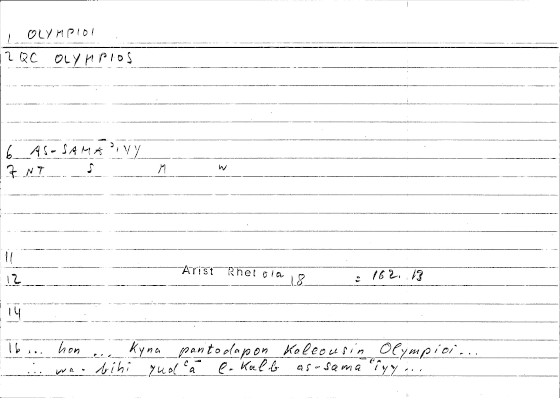 1 OLYMPIOI
2 QC OLYMPIOS
6 AS-SAMĀʾIYY
7 NT S M W
11
12 Arist Rhet 01a 18 = 162. 13
14
16 ... hon ... Kyna pantodapon Kaleousin Olympioi ...
... wa-bihi yudʿā l-Kalb as-samāʾiyy ...